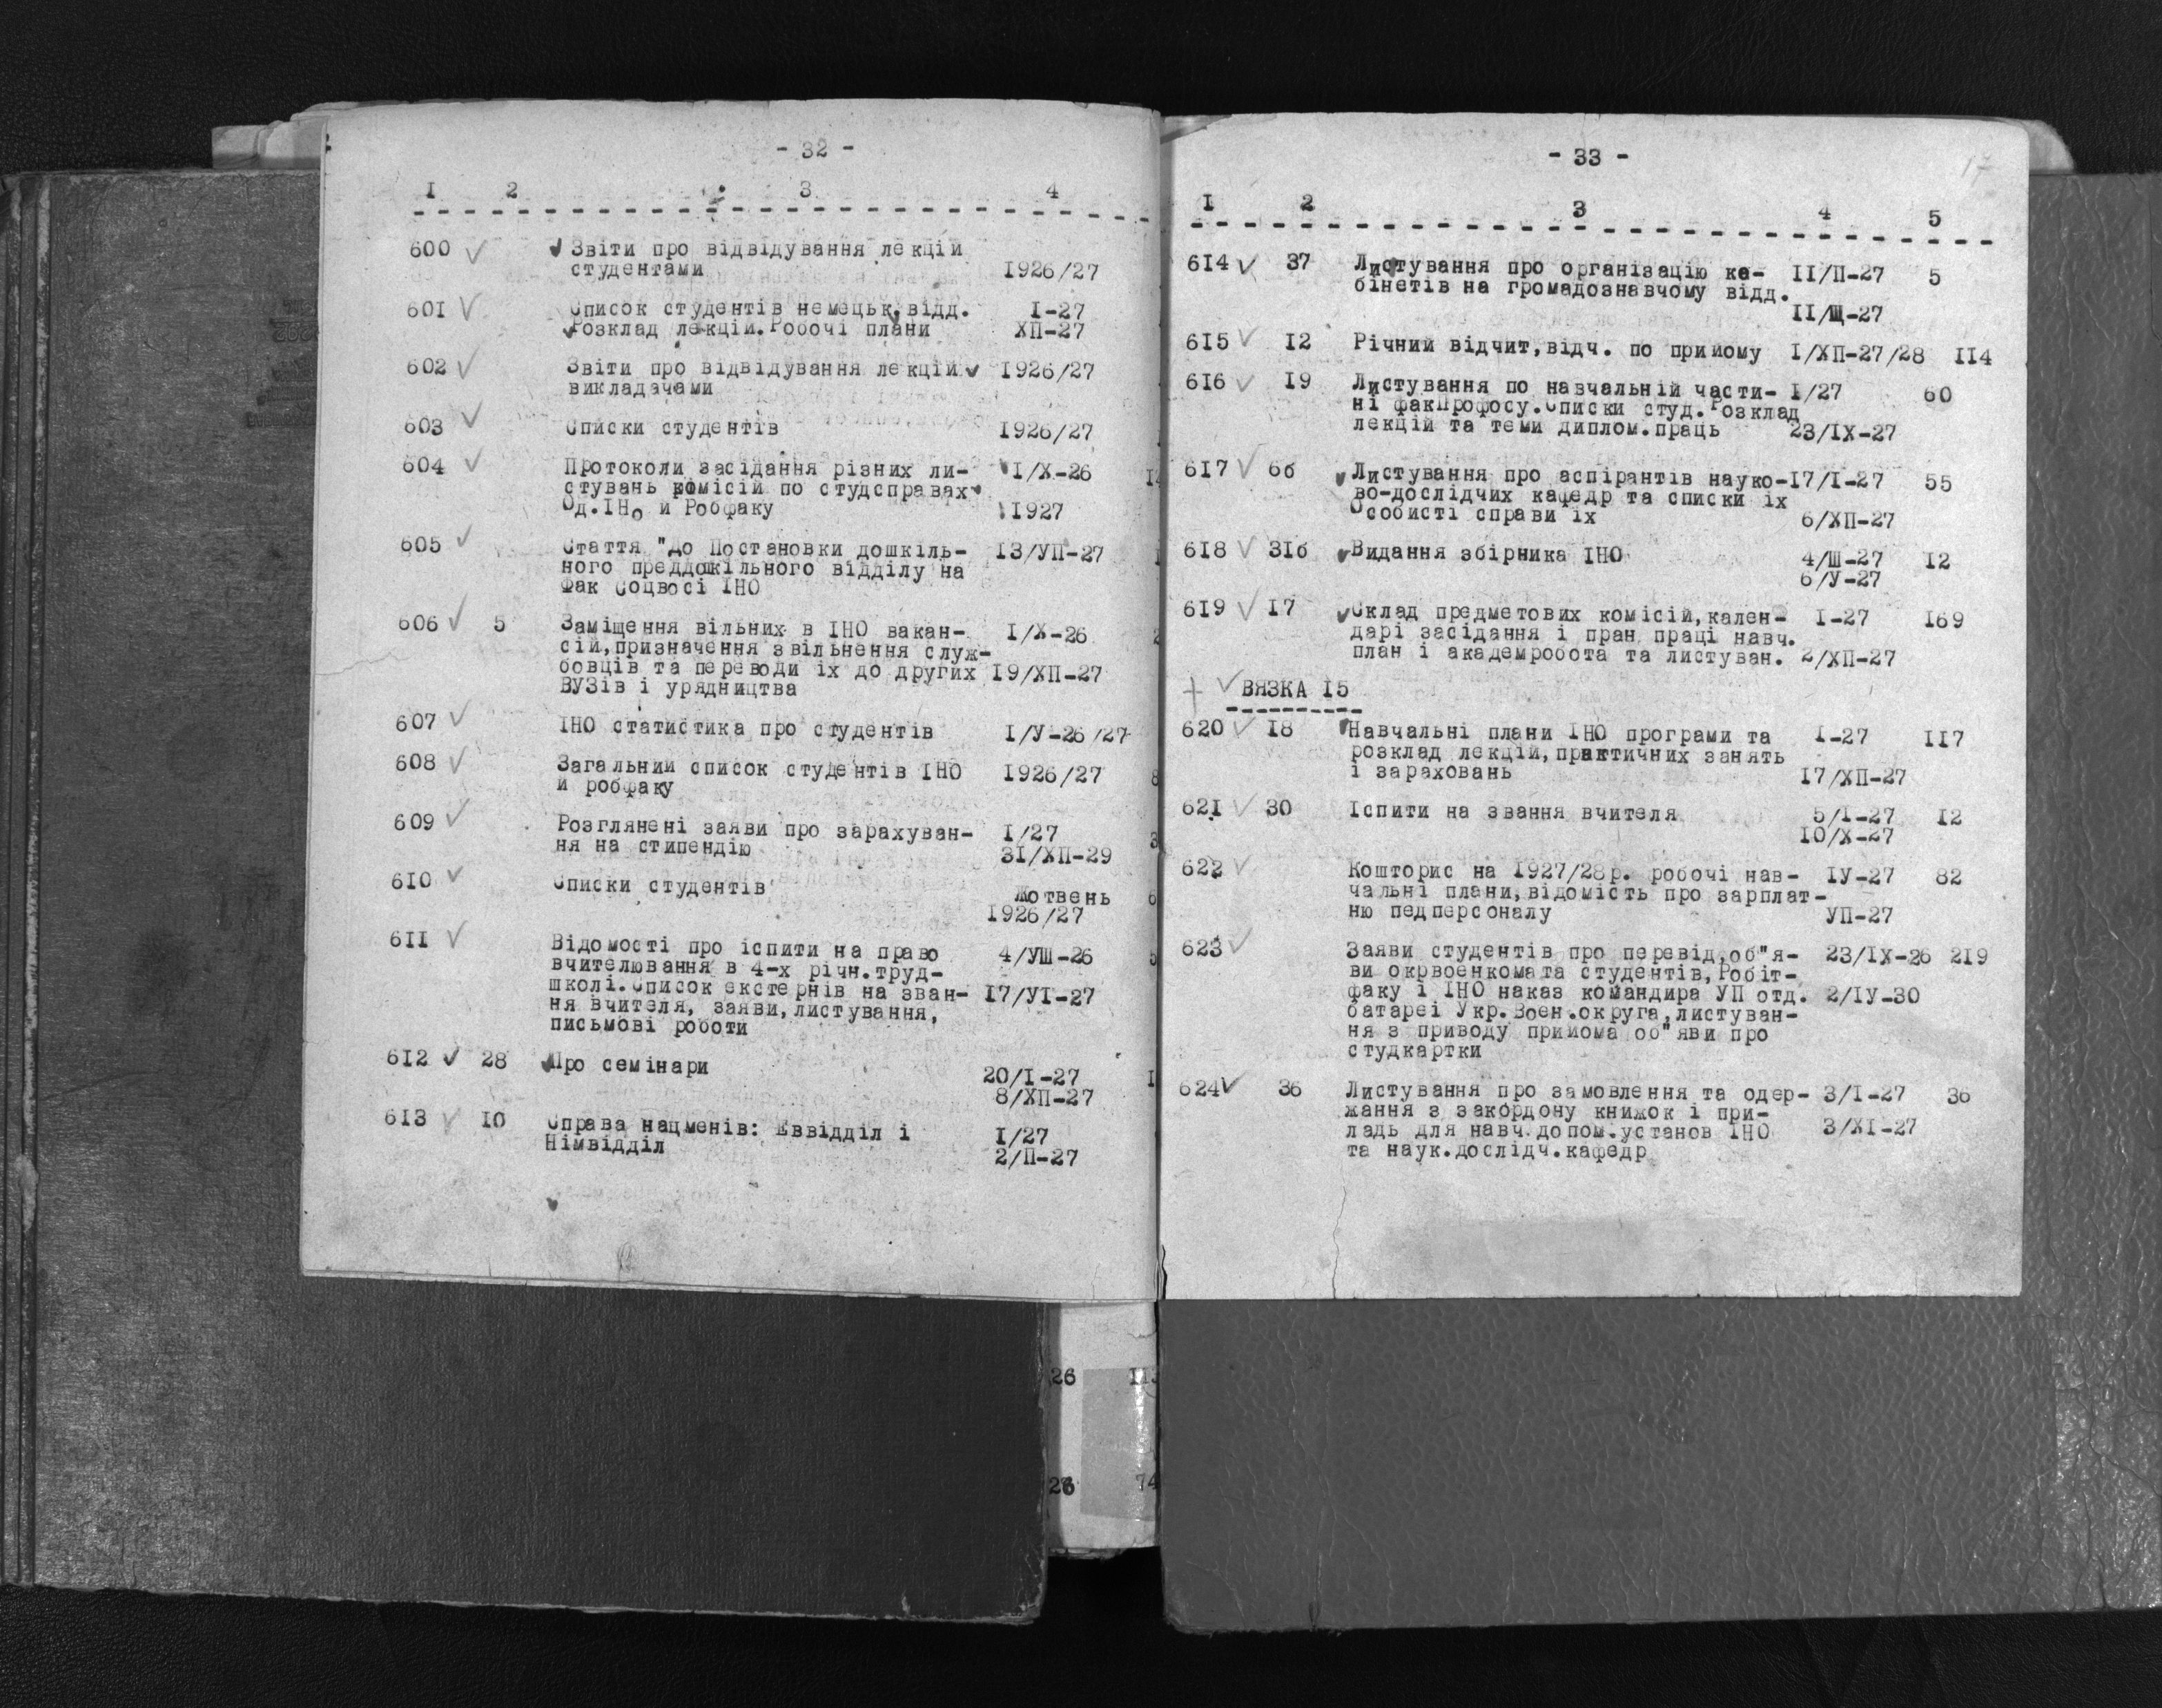 - 32 -
I 2 3 4
600 Звіти про відвідування лекцій
студентами 1926/27
601 Список студентів немецьк.відд. I-27
Розклад лекцій.Робочі плани ХП-27
602 Звіти про відвідування лекцій 1926/27
викладачами
603 Списки студентів 1926/27
604 Протоколи засідання різних ли- I/X-26
стувань комісій по студсправах
Од.ІНо и Робфаку 1927
605 Стаття "До Постановки дошкіль- 13/УП-27
ного преддошкільного відділу на
Фак Соцвосі ІНО
606 5 Заміщення вільних в ІНО вакан- I/X-26
сій,призначення звільнення служ-
бовців та переводи іх до других 19/ХП-27
ВУЗів і урядництва
607 ІНО статистика про студентів I/У-26/27
608 Загальний список студентів ІНО 1926/27
й робфаку
609 Розглянені заяви про зарахуван- I/27
ня на стипендію 31/ХП-29
610 Списки студентів Жотвень
1926/27
611 Відомості про іспити на право 4/УШ-26
вчителювання в 4-х річн.труд-
школі.Список екстернів на зван- 17/УІ-27
ня вчителя, заяви,листування,
письмові роботи
612 28 Про семінари 20/I-27
8/ХП-27
613 10 Справа нацменів: Еввідділ і I/27
Німвідділ 2/П-27
26
26 74
- 33 -
17
I 2 3 4 5
614 37 Листування про організацію ка- II/П-27 5
бінетів на громадознавчому відд.
II/Щ-27
615 12 Річний відчит,відч. по прийому I/ХП-27/28 114
616 19 Листування по навчальній части- I/27 60
ні факПрофосу.Списки студ.Розклад
лекцій та теми диплом.праць 23/IX-27
617 6б Листування про аспірантів науко-17/I-27 55
во-дослідчих кафедр та списки іх
Особисті справи іх 6/ХП-27
618 31б Видання збірника ІНО 4/Ш-27 12
6/У-27
619 17 Склад предметових комісій,кален- I-27 169
дарі засідання і пран праці навч.
план і академробота та листуван. 2/ХП-27
ВЯЗКА 15
620 18 Навчальні плани ІНО програми та I-27 117
розклад лекцій,практичних занять
і зараховань 17/ХП-27
621 30 Іспити на звання вчителя 5/I-27 12
10/X-27
622 Кошторис на 1927/28р. робочі нав- ІУ-27 82
чальні плани,відомість про зарплат-
ню педперсоналу УП-27
623 Заяви студентів про перевід,об"я- 23/IX-26 219
ви окрвоенкомата студентів,Робіт-
факу і ІНО наказ командира УП отд. 2/ІУ-30
батареі Укр.Воен.округа,листуван-
ня з приводу прийома об"яви про
студкартки
624 36 Листування про замовлення та одер- 3/I-27 36
жання з закордону книжок і при-
ладь для навч.допом.установ ІНО 3/XI-27
та наук.дослідч.кафедр